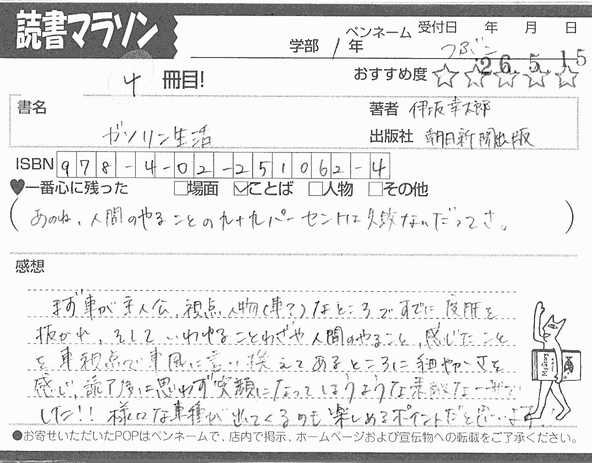 読書マラソン
学部 1年 ペンネーム つぶこ 受付日 年 月 日
26.5.15
4 冊目! おすすめ度 ☆☆☆☆☆
書名 ガソリン生活
著者 伊坂幸太郎
出版社 朝日新聞出版
ISBN 978-4-02-251062-4
♥一番心に残った □場面 ☑ことば □人物 □その他
(あのね、人間のやることの九十九パーセントは失敗なんだってさ。)
感想
まず車が主人公、視点人物(車?)なところですでに度肝を
抜かれ、そして いわゆることわざや人間のやること、感じたこと
を車視点で車風に言い換えてあるところに細やかさを
感じ、読了後に思わず笑顔になってしまうような素敵な一冊で
した!! 様々な車種が出てくるのも楽しめるポイントだと思います!
●お寄せいただいたPOPはペンネームで、店内で掲示、ホームページおよび宣伝物への転載をご了承ください。